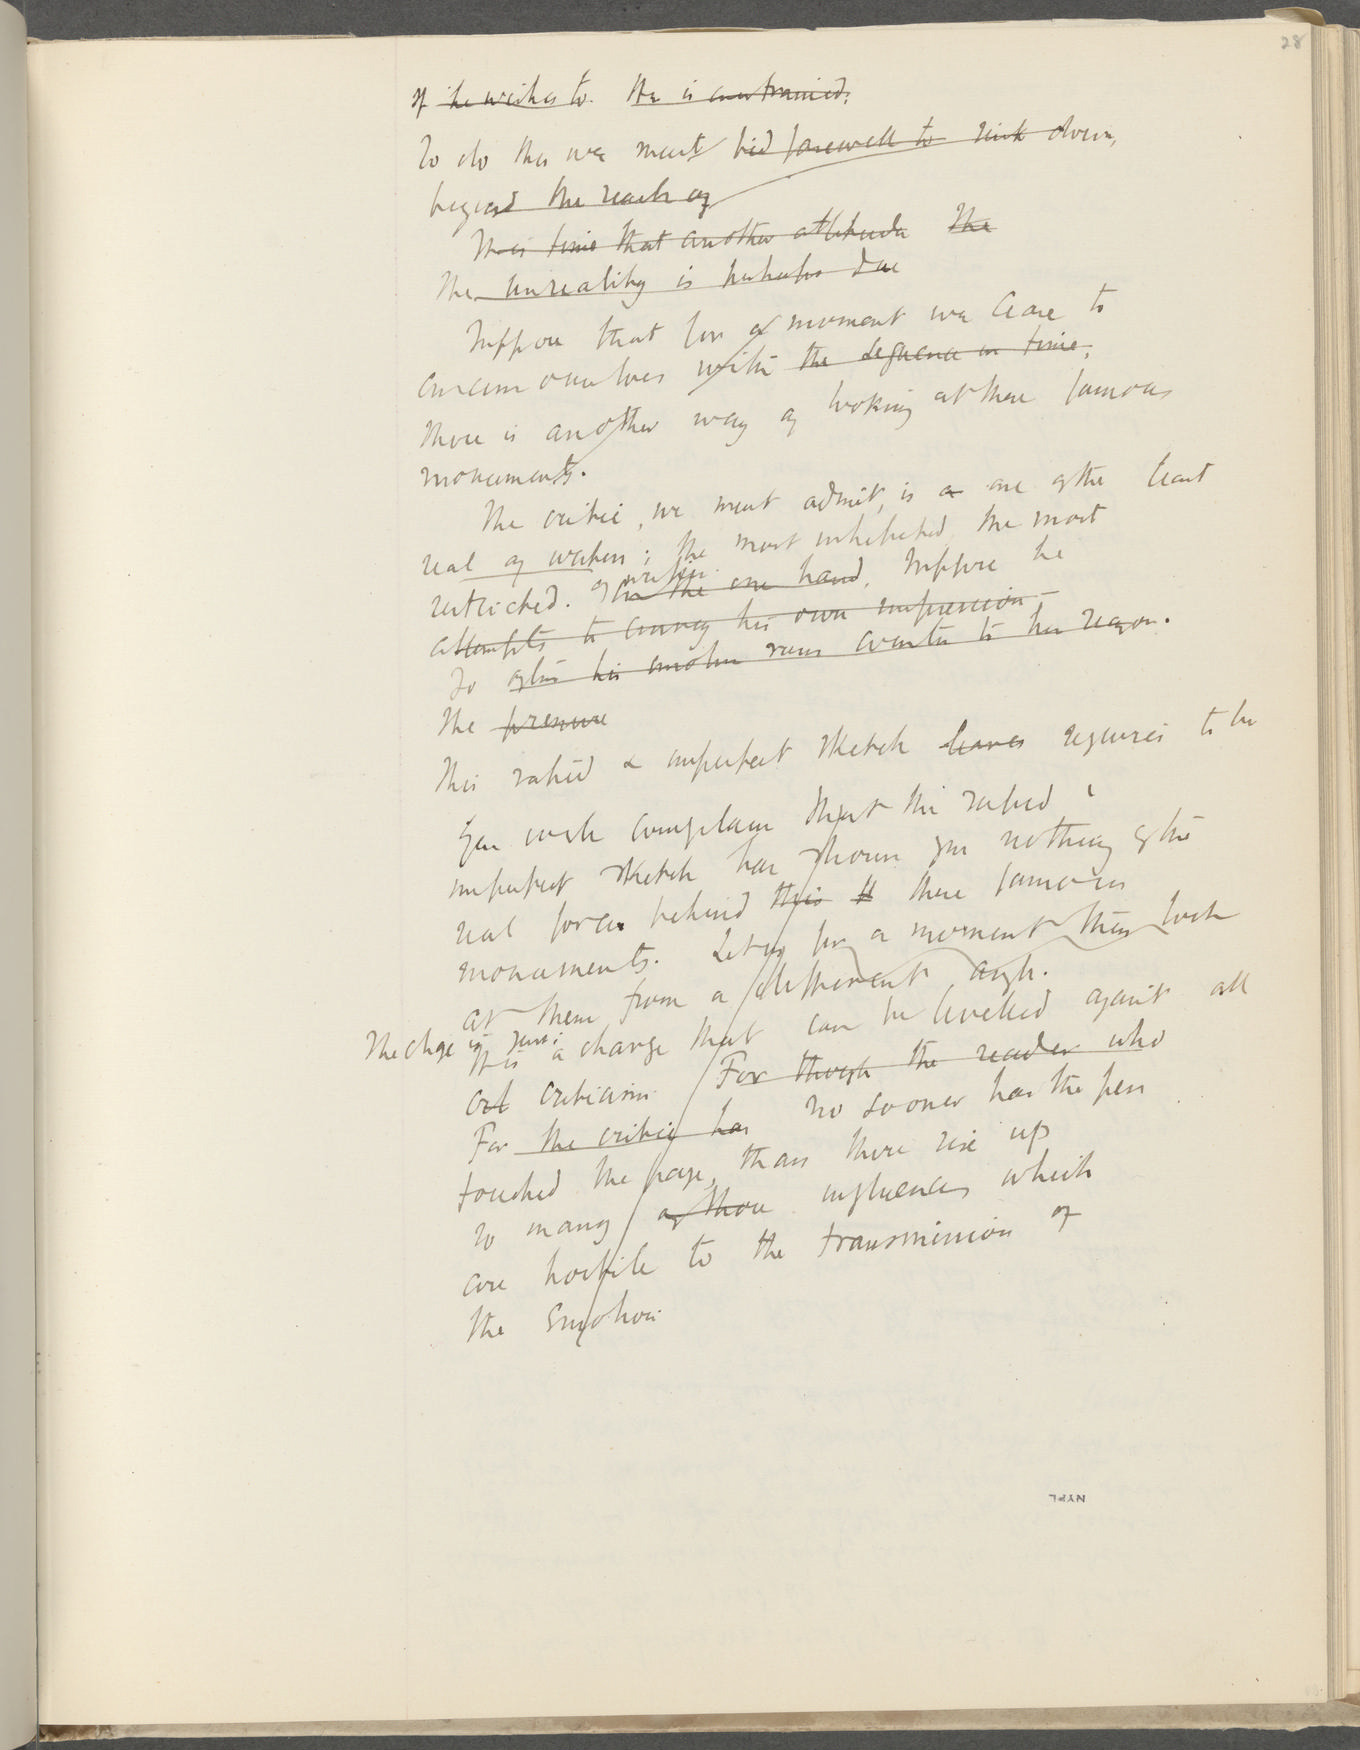 28
If he wishes to. He is constrained;
To do this we must bid farewell to sink down,
beyond the reach of
It is time that another attitude The
The unreality is perhaps due
Suppose that for a moment we cease to
concern ourselves with the sequence in time,
there is another way of looking at these famous
monuments.
The critic, we must admit, is a one of the least
real of writers; the most inhibited, the most
of writers.
restricted. On the one hand, Suppose he
attempts to convey his own impression
To his emotion runs counter to his reason.
The pressure
This rapid & imperfect sketch leaves requires to be
You will complain that this rapid &
imperfect sketch has shown you nothing of the
real force behind this it these famous
monuments. Let us for a moment then look
at them from a different angle.
The charge is just;
It is a charge that can be levelled against all
all criticism. For though the reader who
For the critic has no sooner has the pen
touched the page, than there rise up
so many of those influences which
are hostile to the transmission of
the emotion
NYPL